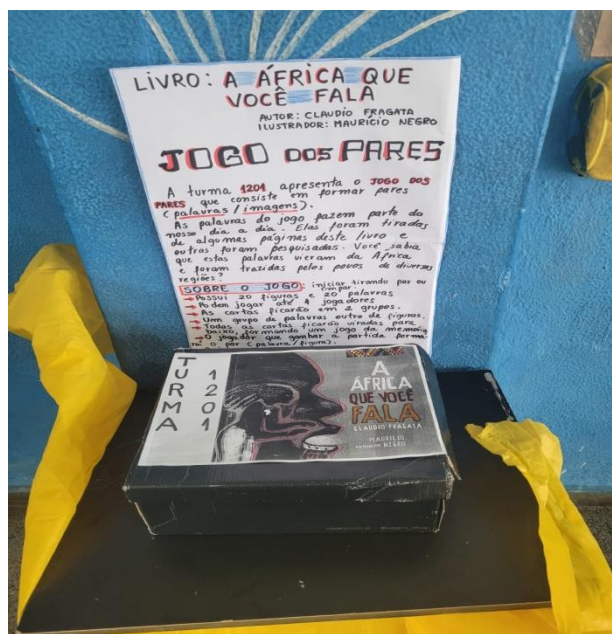 LIVRO: A ÁFRICA QUE
VOCÊ FALA
AUTOR: CLAUDIO FRAGATA
ILUSTRADOR: MAURICIO NEGRO
JOGO DOS PARES
A turma 1201 apresenta o JOGO DOS
PARES que consiste em formar pares
(palavras / imagens).
As palavras do jogo fazem parte do
nosso dia a dia. Elas foram tiradas
de algumas páginas deste livro e
outras foram pesquisadas. Você sabia
que estas palavras vieram da África
e foram trazidas pelos povos de diversas
regiões?
SOBRE O JOGO: iniciar tirando par ou
ímpar.
→ Possui 20 figuras e 20 palavras
→ Podem jogar até 4 jogadores
→ As cartas ficarão em 2 grupos.
→ Um grupo de palavras outro de figuras.
→ Todas as cartas ficarão viradas para
baixo, formando um jogo da memória
→ O jogador que ganhar a partida forma
rá o par (palavra/figura).
TURMA
1201
A
ÁFRICA
QUE VOCÊ
FALA
CLAUDIO FRAGATA
MAURICIO
NEGRO